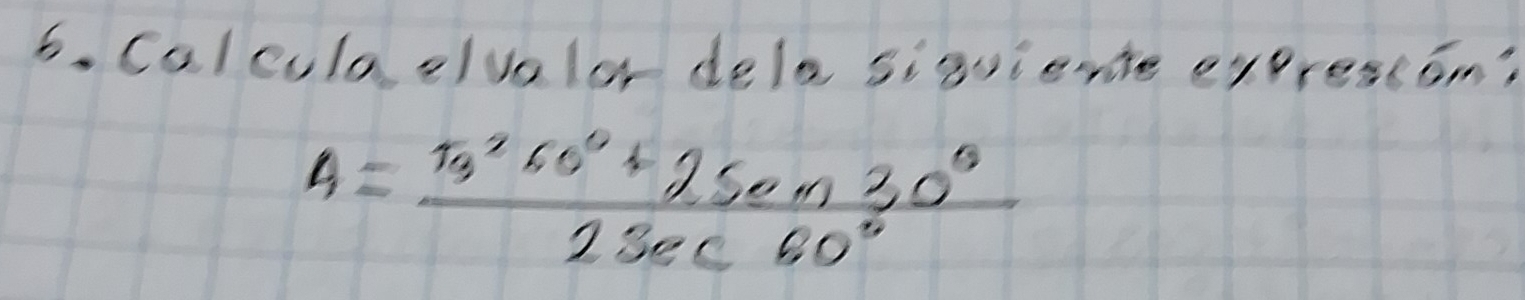 6. Calcula el valor dela siguiente expresión:
A = Tg² 60° + 2 Sen 30°
2 Sec 60°